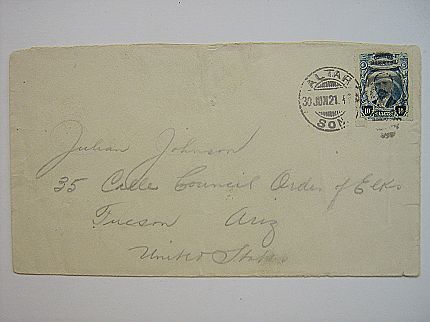 ALTAR
30 JUN 21. 4
SON
10 10
Julian Johnson
35 Calle Council Order of Elks
Tucson Ariz
United States